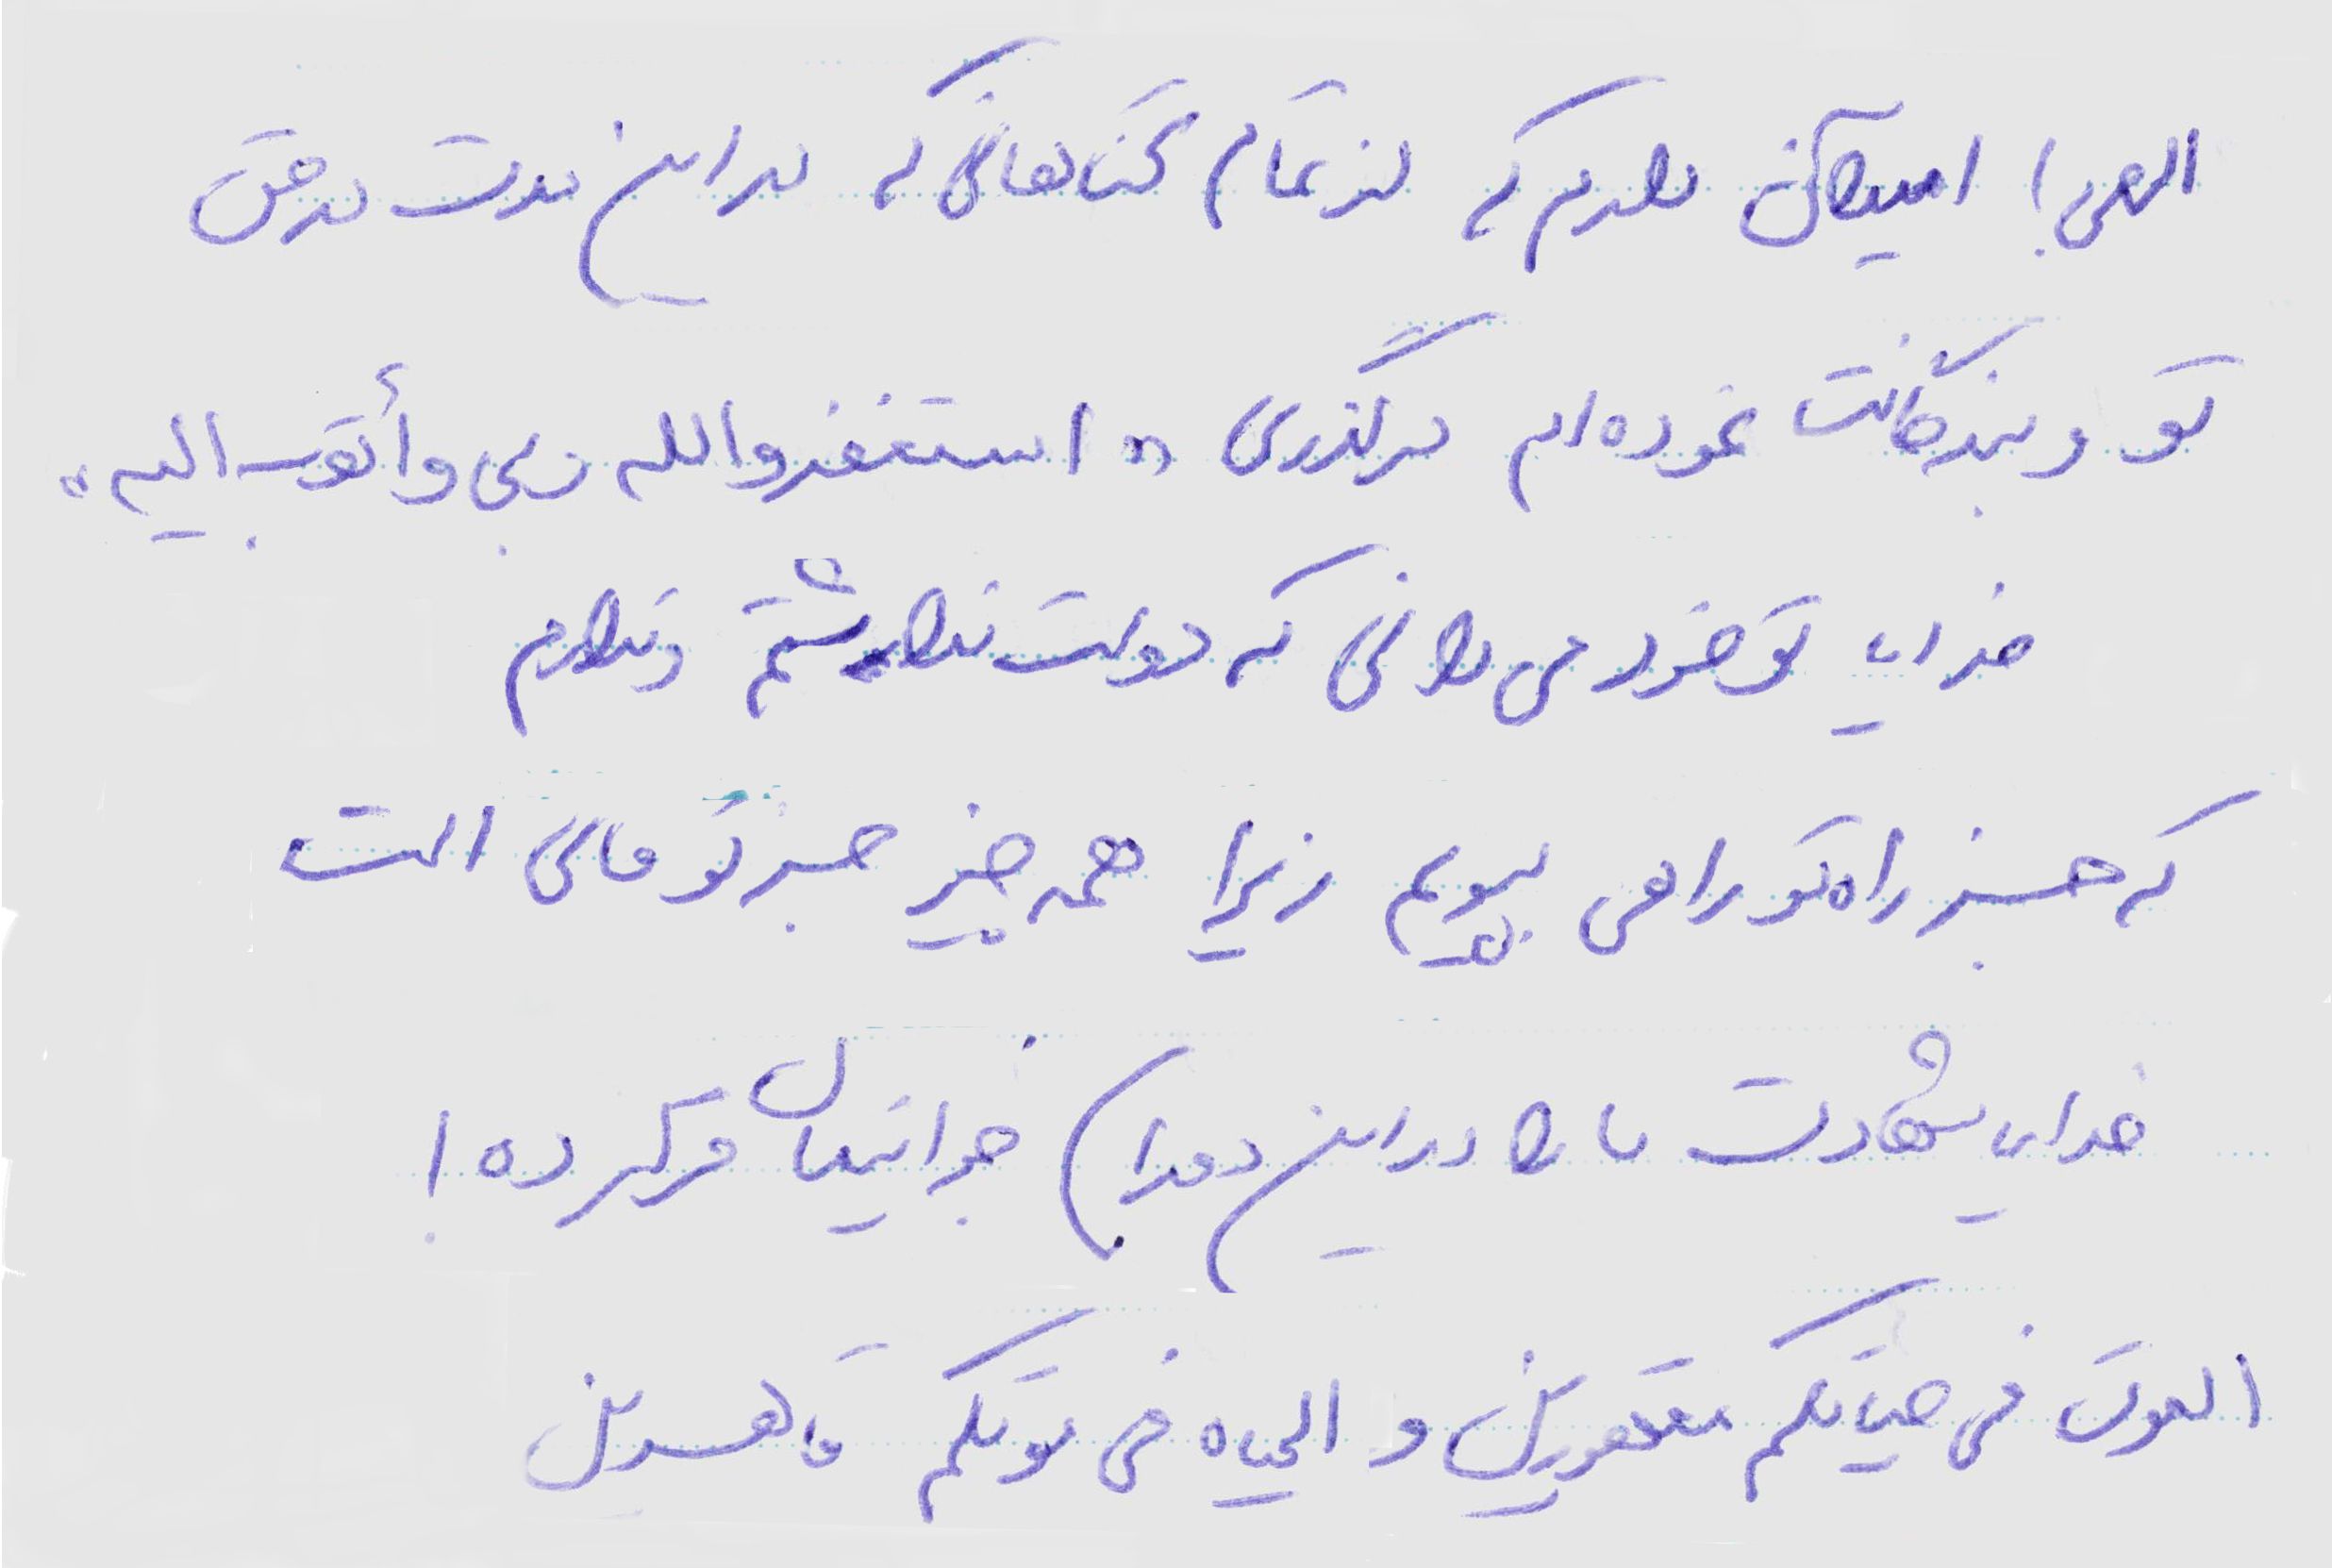 الهی! امید آن دارم که از تمام گناهانی که در این مدت در حق
تو و بندگانت نموده‌ام درگذری «استغفروالله ربی و أتوب الیه»
خدایا تو خود می دانی که دوست نداشتم و ندارم
که جز راه تو راهی بپویم زیرا همه چیز جز تو فانی است
خدایا شهادت ما را در این صحرا نمایان کرده!
الموت فی حیاتکم مقهورین و الحیاه فی موتکم قاهرین